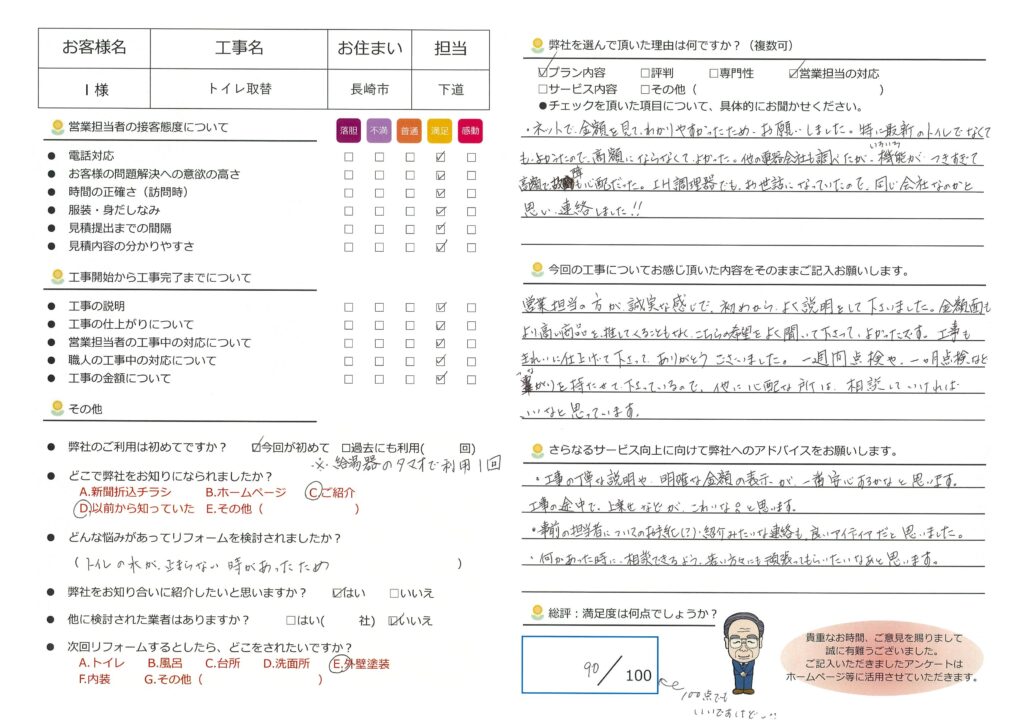 お客様名 工事名 お住まい 担当
I 様 トイレ取替 長崎市 下道
営業担当者の接客態度について 落胆 不満 普通 満足 感動
● 電話対応 □ □ □ ☑ □
● お客様の問題解決への意欲の高さ □ □ □ ☑ □
● 時間の正確さ（訪問時） □ □ □ ☑ □
● 服装・身だしなみ □ □ □ ☑ □
● 見積提出までの間隔 □ □ □ ☑ □
● 見積内容の分かりやすさ □ □ □ ☑ □
工事開始から工事完了までについて
● 工事の説明 □ □ □ ☑ □
● 工事の仕上がりについて □ □ □ ☑ □
● 営業担当者の工事中の対応について □ □ □ ☑ □
● 職人の工事中の対応について □ □ □ ☑ □
● 工事の金額について □ □ □ ☑ □
その他
● 弊社のご利用は初めてですか？ ☑今回が初めて □過去にも利用( 回)
※ 給湯器のタマオで利用1回
● どこで弊社をお知りになられましたか？
A.新聞折込チラシ B.ホームページ C.ご紹介
D.以前から知っていた E.その他（ ）
● どんな悩みがあってリフォームを検討されましたか？
（ トイレの水が、止まらない時があったため ）
● 弊社をお知り合いに紹介したいと思いますか？ ☑はい □いいえ
● 他に検討された業者はありますか？ □はい( 社) ☑いいえ
● 次回リフォームするとしたら、どこをされたいですか？
A.トイレ B.風呂 C.台所 D.洗面所 E.外壁塗装
F.内装 G.その他（ ）
弊社を選んで頂いた理由は何ですか？（複数可）
☑プラン内容 □評判 □専門性 ☑営業担当の対応
□サービス内容 □その他（ ）
●チェックを頂いた項目について、具体的にお聞かせください。
・ネットで、金額を見て、わかりやすかったため、お願いしました。特に最新のトイレでなくて
も、よかったので、高額にならなくて、よかった。他の電器会社も調べたが、いろいろ機能が、つきすぎて
高額で、故障も心配だった。IH調理器でも、お世話になっていたので、同じ会社なのかと
思い、連絡しました!!
今回の工事についてお感じ頂いた内容をそのままご記入お願いします。
営業担当の方が、誠実な感じで、初めから、よく説明をして下さいました。金額面も
より高い商品を、推してくることもなく、こちらの希望をよく聞いて下さって、よかったです。工事も
きれいに仕上げて下さって、ありがとうございました。一週間点検や、一ヶ月点検など
つながりを持たせて下さっているので、他に心配な所は、相談していければ
いいなと思っています。
さらなるサービス向上に向けて弊社へのアドバイスをお願いします。
・工事の丁寧な説明や、明確な金額の表示が、一番安心あるかなと思います。
工事の途中で、上乗せなどが、こわいなあと思います。
・事前の担当者についてのお手紙(?)・紹介みたいな連絡も、良いアイディアだと思いました。
・何かあった時に、相談できるよう、若い方々にも頑張ってもらいたいなあと思います。
総評：満足度は何点でしょうか？
90 / 100
100点でも
いいですけど…!!
貴重なお時間、ご意見を賜りまして
誠に有難うございました。
ご記入いただきましたアンケートは
ホームページ等に活用させていただきます。